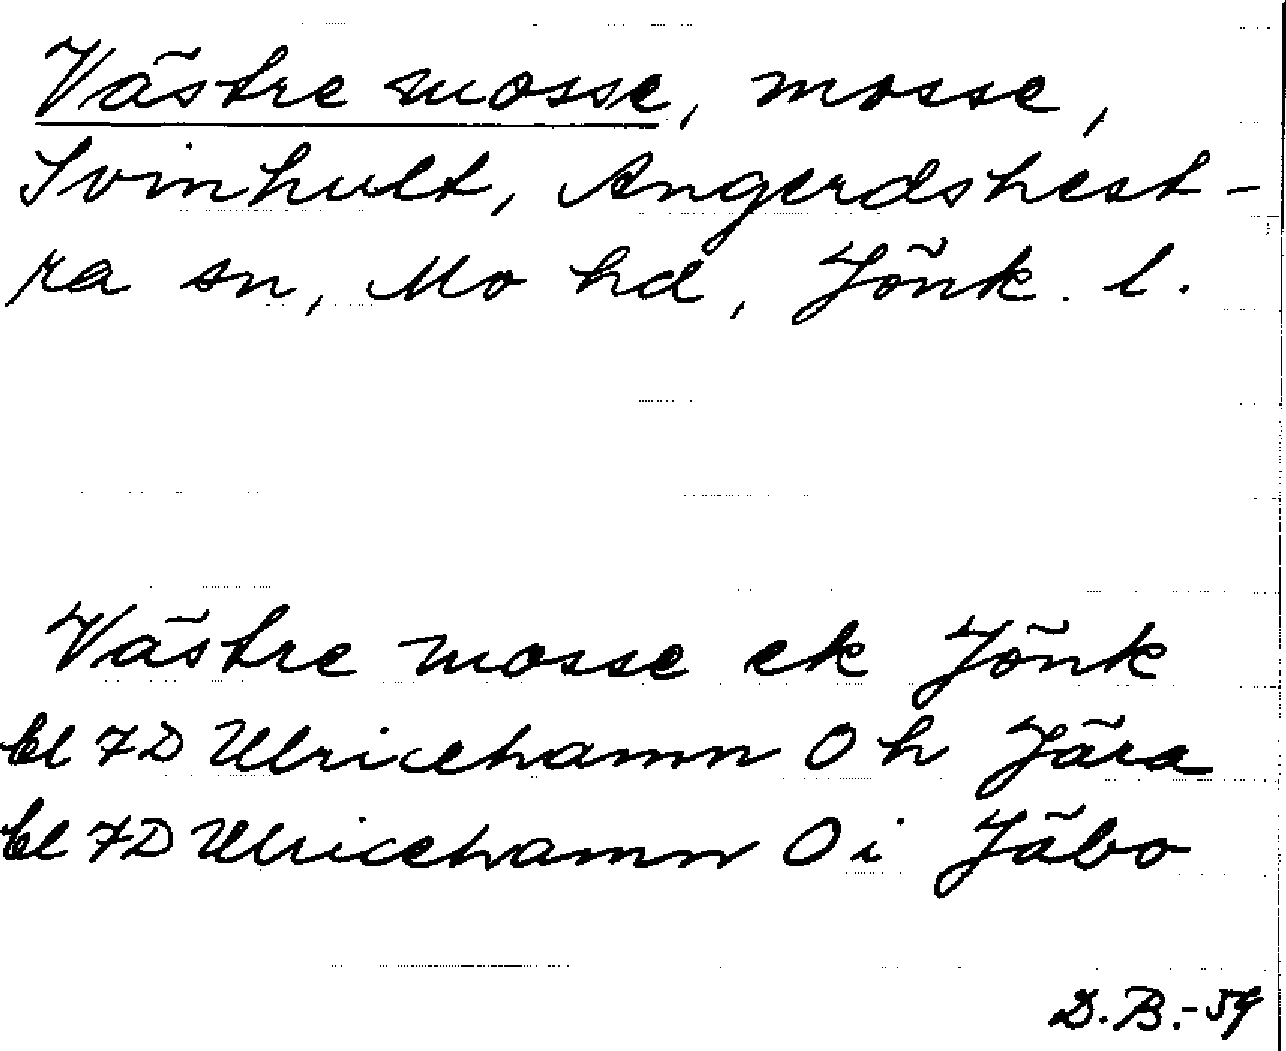 Västre mosse, mosse,
Svinhult, Angerdshest-
ra sn, Mo hd, Jönk. l.
Västre mosse ek Jönk
bl 7D Ulricehamn 0 h Jära
bl 7D Ulricehamn 0 i Jäbo
D.B.-59